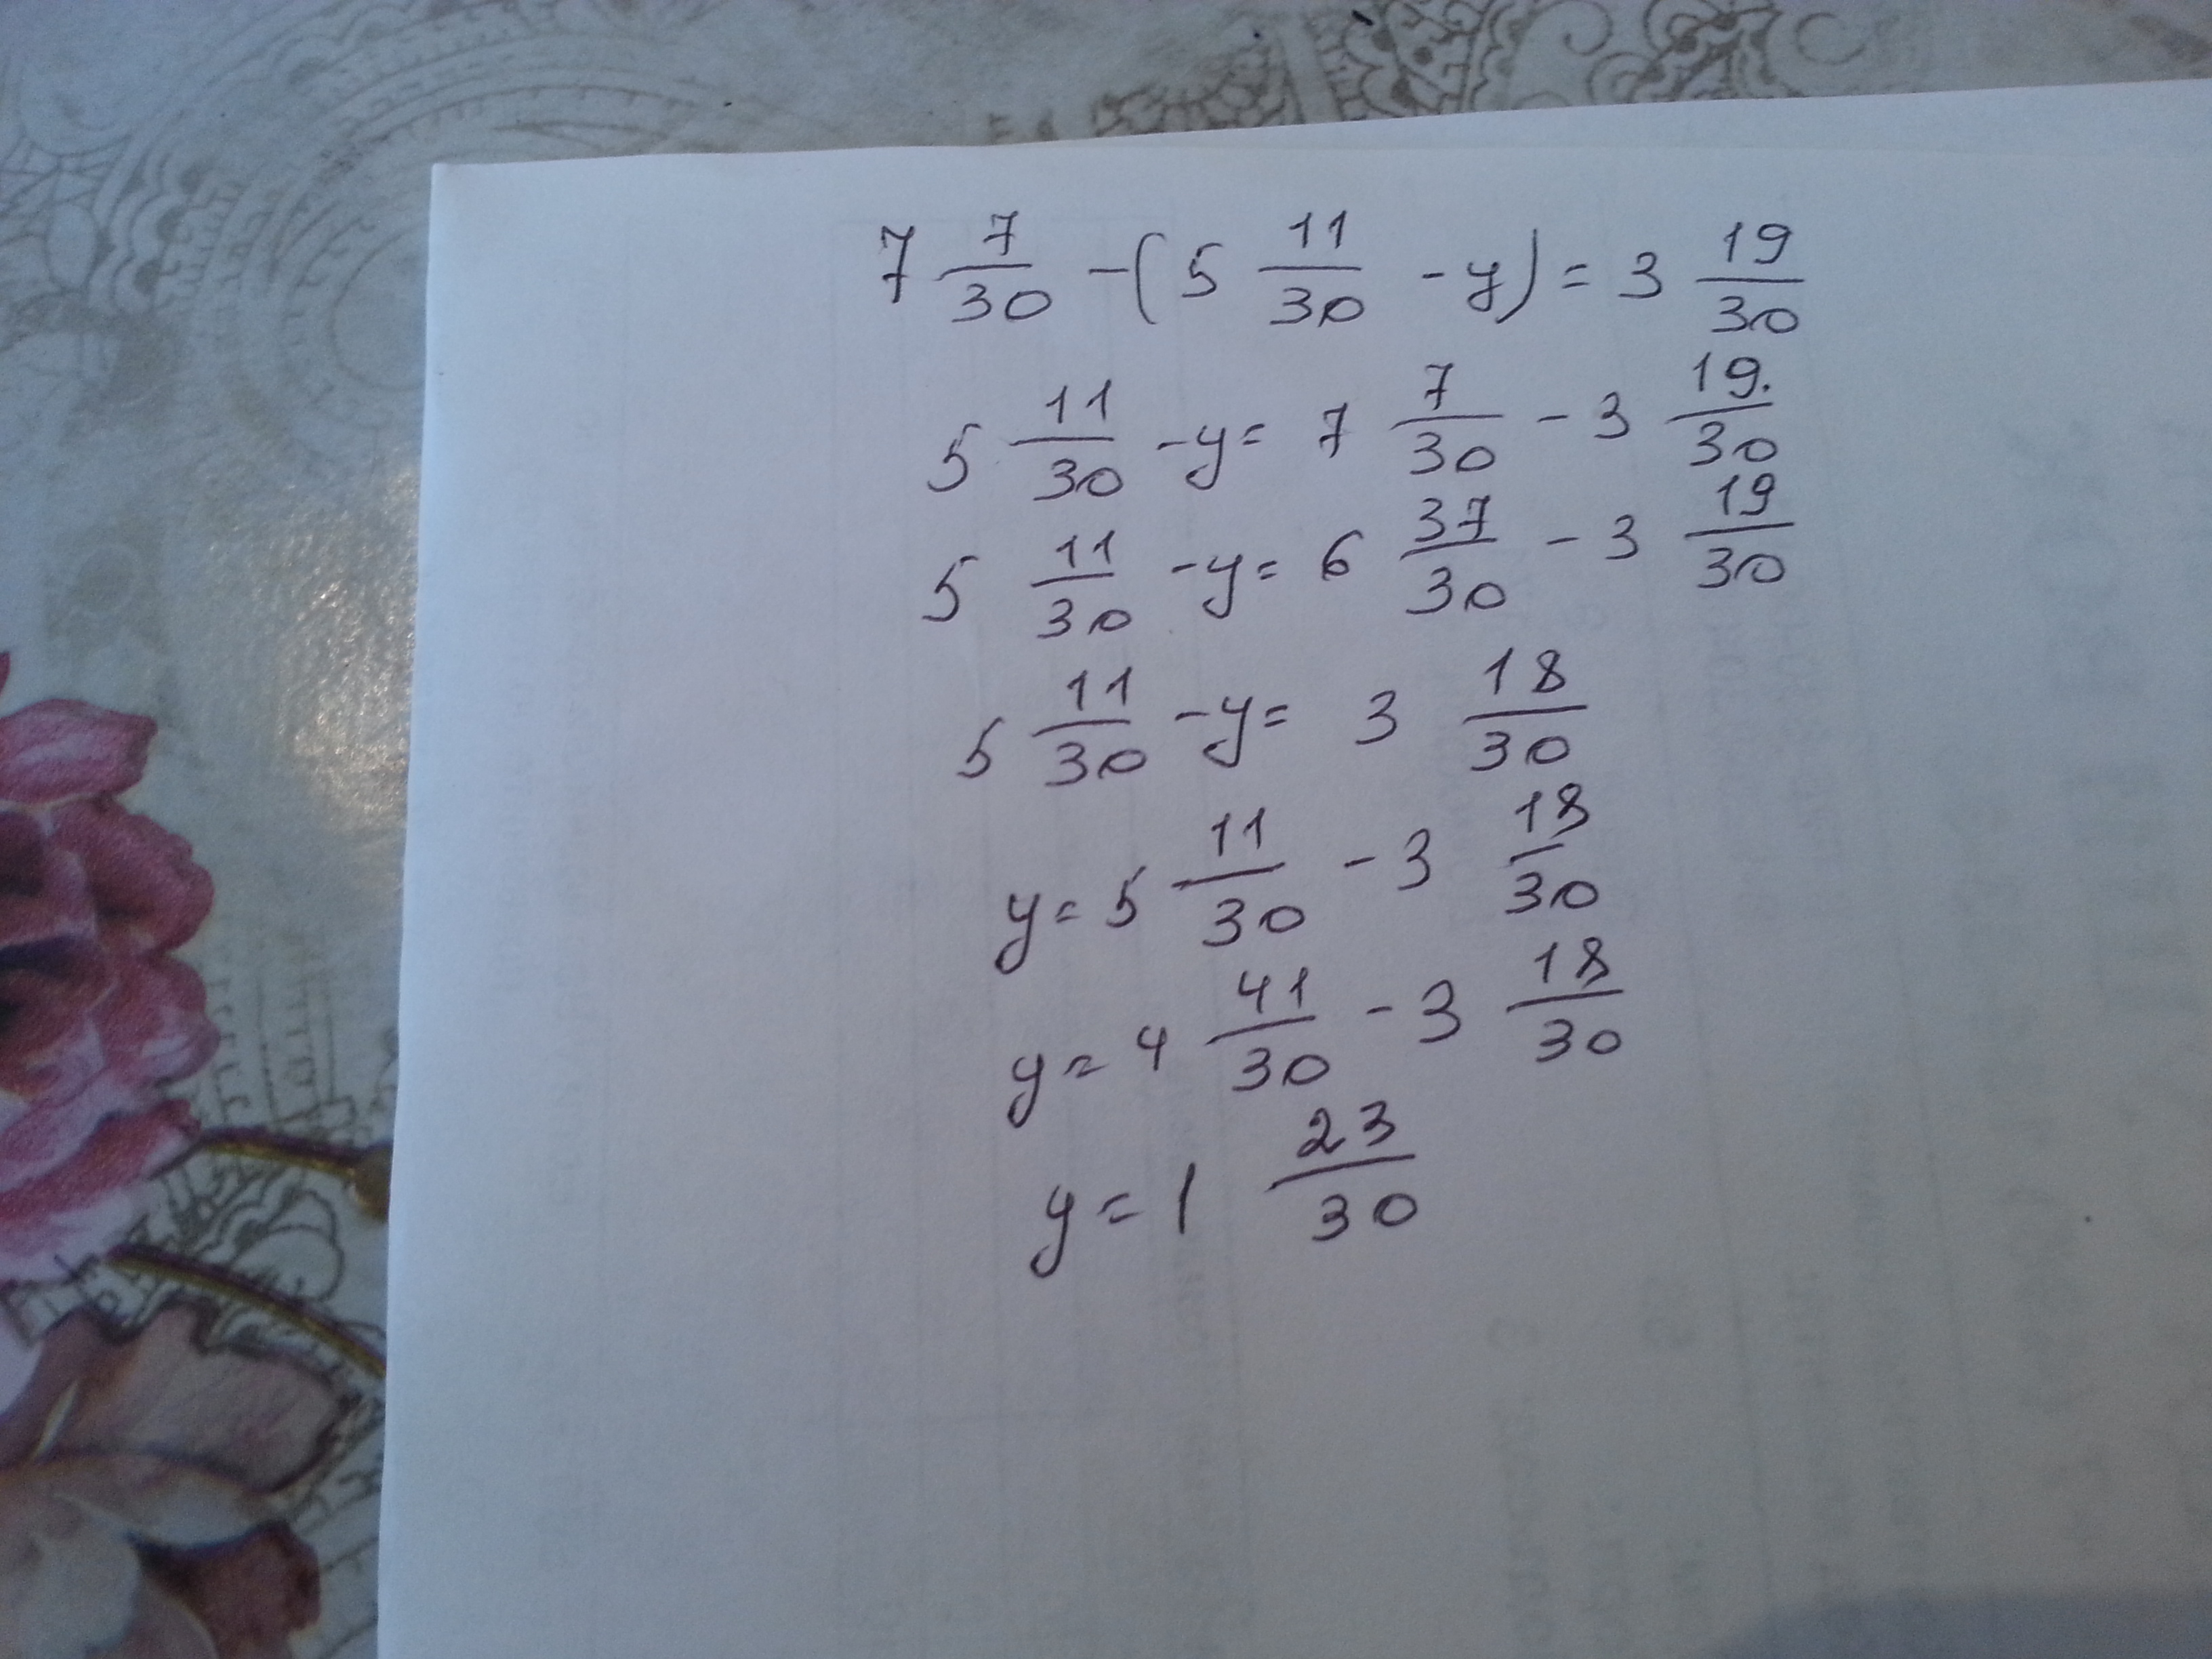 7 7/30 - (5 11/30 - y) = 3 19/30
5 11/30 - y = 7 7/30 - 3 19/30
5 11/30 - y = 6 37/30 - 3 19/30
5 11/30 - y = 3 18/30
y = 5 11/30 - 3 18/30
y = 4 41/30 - 3 18/30
y = 1 23/30